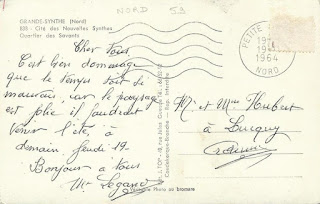 NORD 59
GRANDS-SYNTHE (Nord)
835 - Cité des Nouvelles Synthes
Quartier des Savants
Cher tous
C'est bien dommage
que le temps soit si
mauvais, car le paysage
est jolie il faudrait
venir l'été, à
demain jeudi 19-
Bonjour à tous
Mr
PETITE
1964
NORD
Mr et Mme Hubert
à
Véritable Photo au bromure